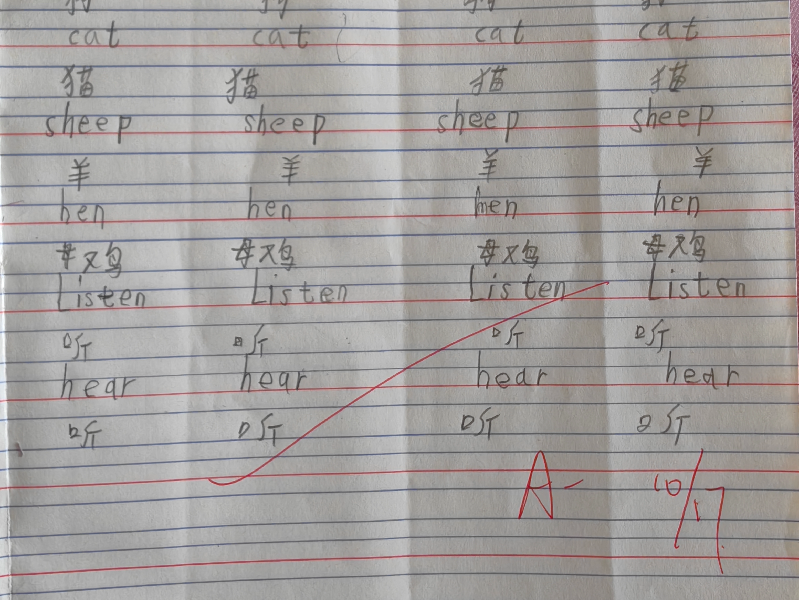 cat cat cat cat
猫 猫 猫 猫
sheep sheep sheep sheep
羊 羊 羊 羊
hen hen hen hen
母鸡 母鸡 母鸡 母鸡
Listen Listen Listen Listen
听 听 听 听
hear hear hear hear
听 听 听 听
A- 10/17